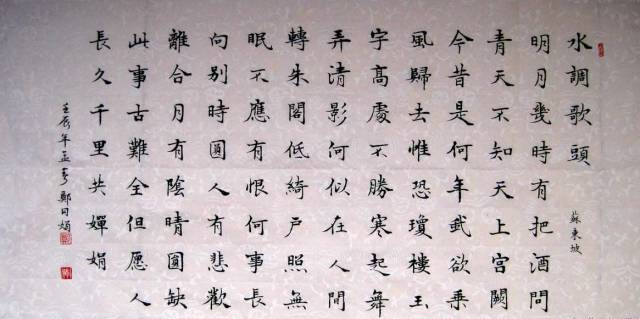 水調歌頭
蘇東坡
明月幾時有把酒問
青天不知天上宮闕
今昔是何年我欲乘
風歸去惟恐瓊樓玉
宇高處不勝寒起舞
弄清影何似在人間
轉朱閣低綺戶照無
眠不應有恨何事長
向別時圓人有悲歡
離合月有陰晴圓缺
此事古難全但愿人
長久千里共嬋娟
壬辰年孟春鄭同娟